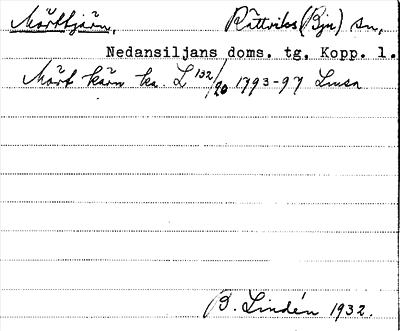 Mörttjärn, Rättviks (Bju) sn,
Nedansiljans doms. tg. Kopp. l.
Mört kärn ka. L 132/20 1793-97 Lmsa
B. Lindén 1932.